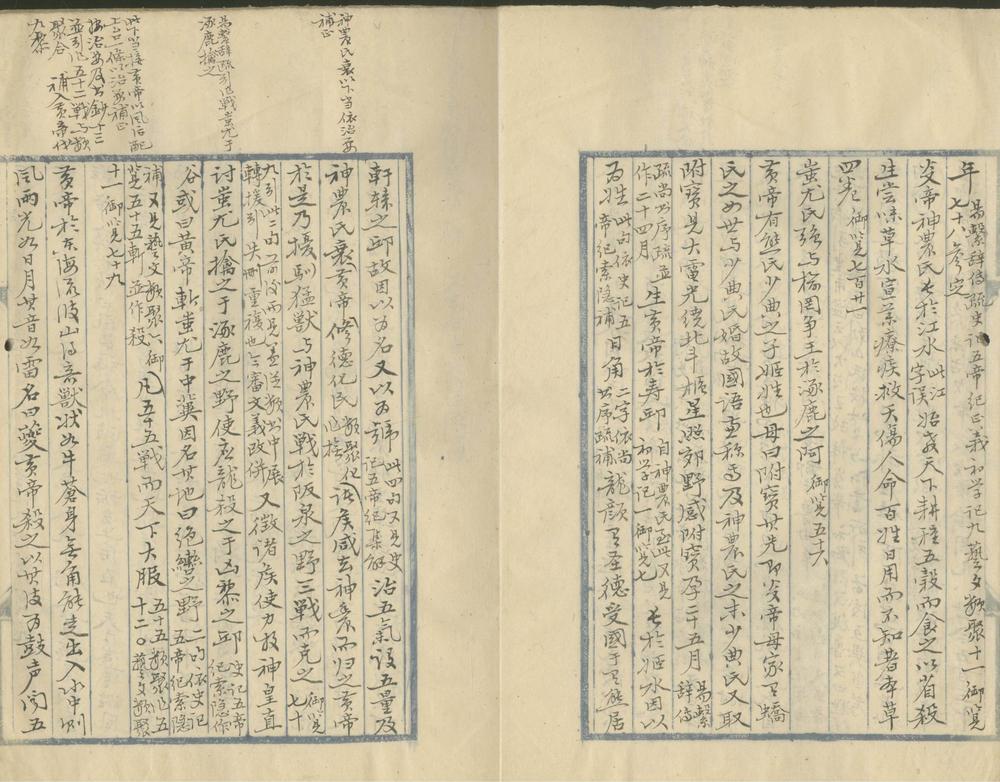 年 易繫辭傳疏史記五帝紀正義初学記九藝文類聚十一御覽七十八參定
炎帝神農氏长於江水此江字误始教天下耕種五穀而食之以省殺
生嘗味草木宣藥療疾救夭傷人命百姓日用而不知著本草
四卷 御覽七百廿一
蚩尤氏強与榆罔争王於涿鹿之阿 御覽五十六
黄帝有熊氏少典之子姬姓也母曰附寶其先即炎帝母家有蟜
氏之女世与少典氏婚故國语兼称焉及神農氏之末少典氏又取
附寶見大電光繞北斗樞星照郊野感附寶孕二十五月 易繫辭傳
疏尚书序疏並作二十四月 生黄帝於寿邱 自神農氏至此又見初学記一御覽七 长於姬水因以
为姓 此句依史記五帝紀索隐補 日角 二字依尚书序疏補 龍顔有圣德受國于有熊居
神農氏衰以下当依治要補正
易繫辭疏引作戰蚩尤于涿鹿擒之
此下当接黄帝以風后配上台一條以治要補正
按治要及书鈔十三並引作五十二戰与類聚合
補入黄帝代九黎
軒轅之邱故因以为名又以为號 此四句又見史記五帝紀集解 治五氣設五量及
神農氏衰黄帝修德化民 類聚化作撫 诸侯咸去神農而归之黄帝
於是乃擾馴猛獸与神農氏戰於阪泉之野三戰而克之 御覽七十
九引此二句 轉援引失刪重複也今審文義改併 又徵诸侯使力牧神皇直
討蚩尤氏擒之于涿鹿之野使应龍殺之于凶黎之邱 史記五帝紀索隐作
谷或曰黄帝斬蚩尤于中冀因名其地曰绝轡之野 二句依史記五帝紀索隐
補又見藝文類聚六御覽五十五斬並作殺 凡五十五戰而天下大服 五十五類聚作五十二〇藝文類聚
十一御覽七十九
黄帝於东海流波山得奇獸状如牛蒼身無角能走出入水中則
風雨光如日月其音如雷名曰夔黄帝殺之以其皮为鼓声闻五